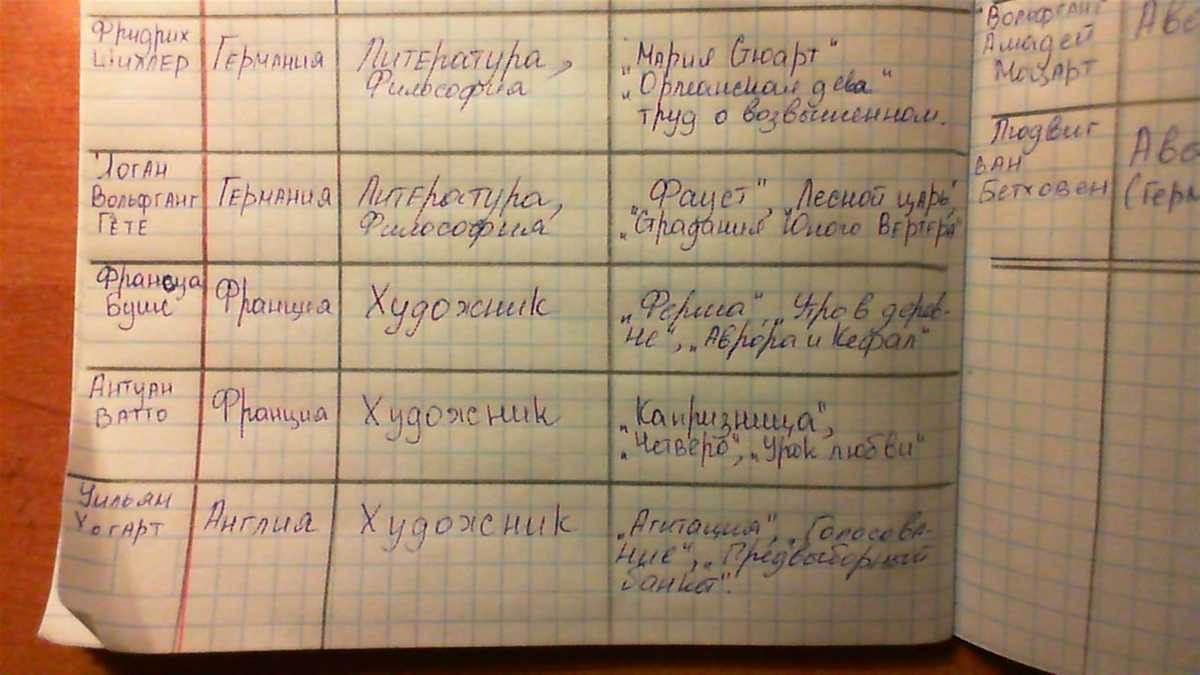 Фридрих
Шиллер
Германия
Литература,
Философия
"Мария Стюарт"
"Орлеанская дева"
труд о возвышенном.
Иоган
Вольфганг
Гёте
Германия
Литература,
Философия
Фауст", "Лесной царь",
"Страдания Юного Вертера"
Франсуа
Буше
Франция
Художник
"Ферма", "Утро в дерев-
не", "Аврора и Кефал"
Антуан
Ватто
Франция
Художник
"Капризница",
"Четверо", "Урок любви"
Уильям
Хогарт
Англия
Художник
"Агитация", "Голосова-
ние", "Предвыборный
банкет".
"Вольфганг
Амадей
Моцарт
Авс
Людвиг
ван
Бетховен
Авс
(Герм